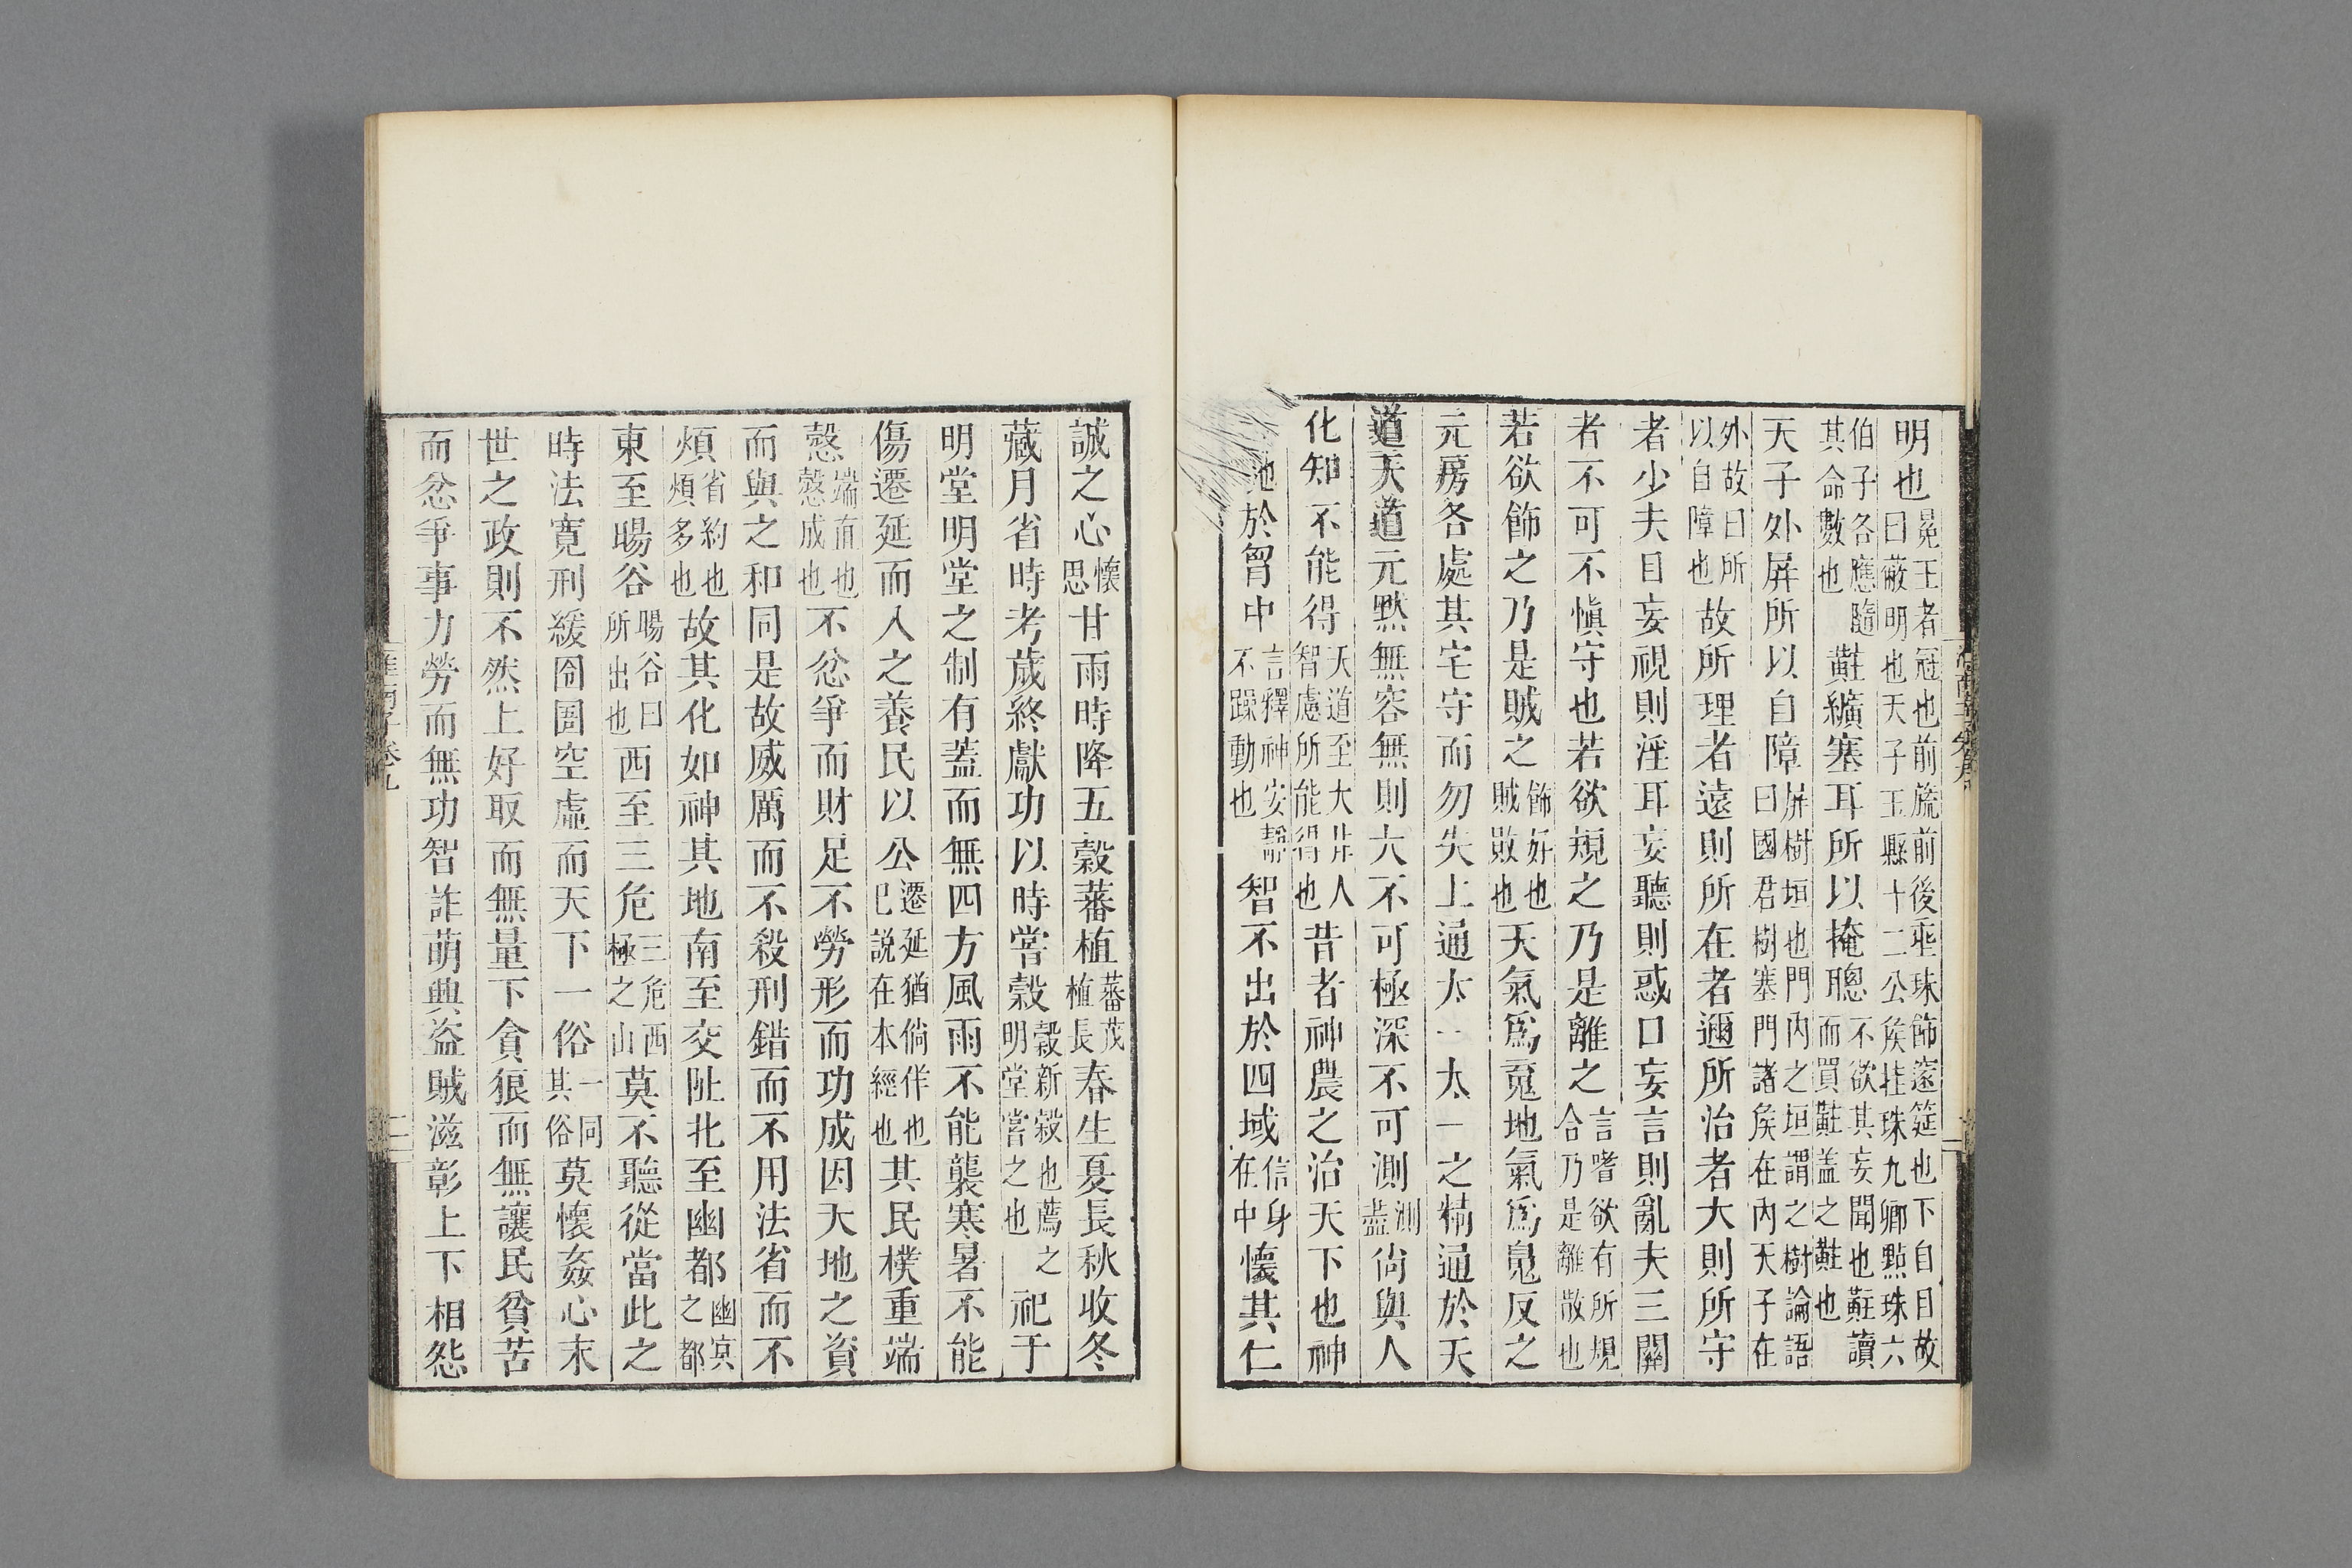 明也冕王者冠也前旒前後垂珠飾邃筵也下自目故曰蔽明也天子玉縣十二公矦挂珠九卿點珠六
伯子各應隨其命數也黈纊塞耳所以掩聰不欲其妄聞也黈讀而買黈盖之黈也
天子外屏所以自障屏樹垣也門內之垣謂之樹論語曰國君樹塞門諸矦在內天子在
外故曰所以自障也故所理者遠則所在者邇所治者大則所守
者少夫目妄視則淫耳妄聽則惑口妄言則亂夫三關
者不可不愼守也若欲規之乃是離之言嗜欲有所規合乃是離散也
若欲飾之乃是賊之飾好也賊敗也天氣爲地氣爲反之
元房各處其宅守而勿失上通太一太一之精通於天
道天道元默無容無則大不可極深不可測測盡尙與人
化知不能得天道至大非人智慮所能得也昔者神農之治天下也神
於胷中言釋神安靜不躁動也智不出於四域信身在中懷其仁
誠之心懷思甘雨時降五穀蕃植蕃茂植長春生夏長秋收冬
藏月省時考歲終獻功以時嘗穀穀新穀也薦之明堂嘗之也祀于
明堂明堂之制有蓋而無四方風雨不能襲寒暑不能
傷遷延而入之養民以公遷延猶倘佯也已說在本經也其民樸重端
慤端直也慤成也不忿爭而財足不勞形而功成因天地之資
而與之和同是故威厲而不殺刑錯而不用法省而不
煩省約也煩多也故其化如神其地南至交阯北至幽都幽冥之都
東至暘谷暘谷日所出也西至三危三危西極之山莫不聽從當此之
時法寬刑緩囹圄空虛而天下一俗一同其俗莫懷姦心末
世之政則不然上好取而無量下貪狼而無讓民貧苦
而忿爭事力勞而無功智詐萌興盜賊滋彰上下相怨
淮南子卷九
二